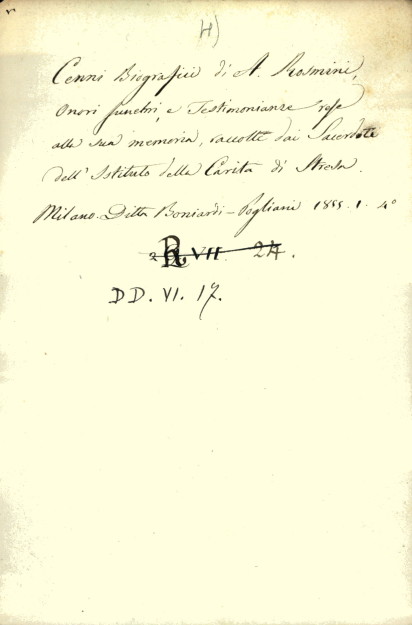 H)
Cenni Biografici di A. Rosmini,
Onori funebri, e Testimonianze rese
alla sua memoria, raccolte dai Sacerdote
dell'Istituto della Carità di Stresa.
Milano. Ditta Boniardi-Pogliani 1855. 1. 4°
VII. 24.
DD. VI. 17.